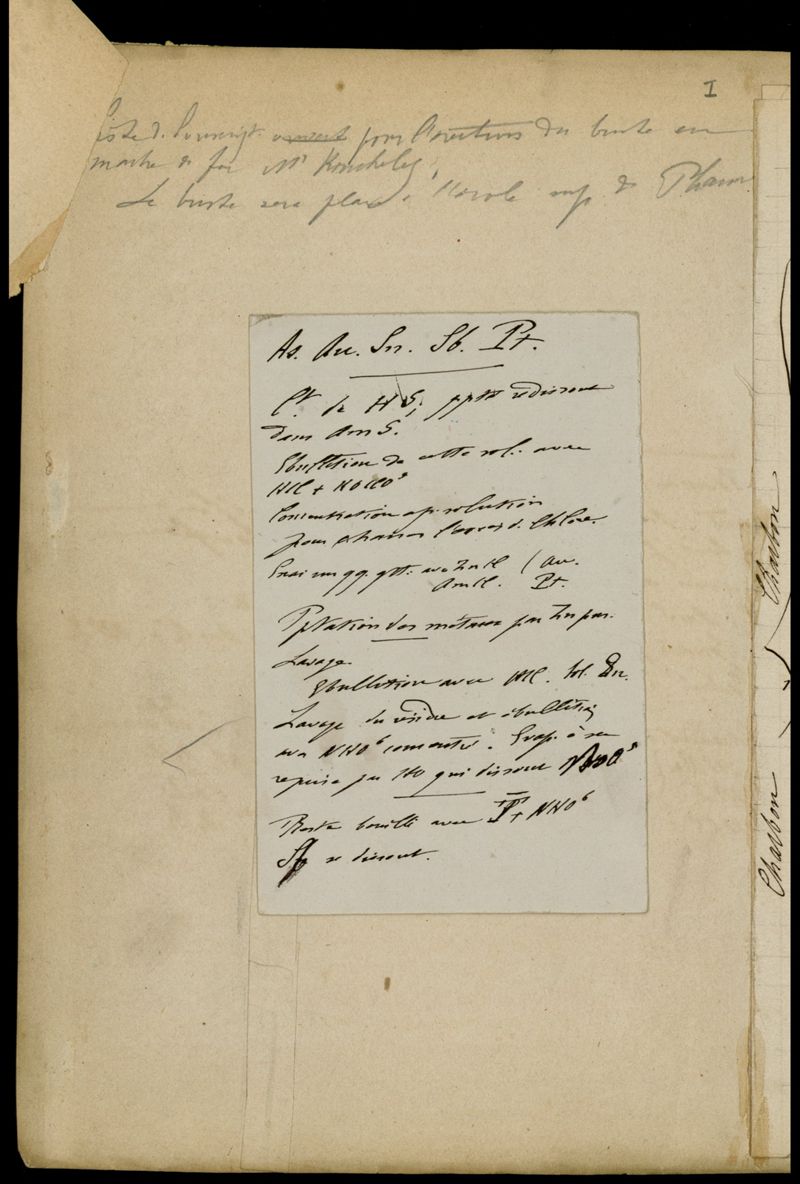 I
Liste d. souscript. ouverte pour l'érection du buste en
marbre de feu Mr
Le buste sera placé à l'école sup. de Pharm
As. Au. Sn. Sb. Pt.
Ct. de HS, ppté redissout
dans AmS.
Ebullition de cette sol. avec
HCl + KOClO⁵
Concentration ap. solution
pour chasser l'excès d. Chlore.
Essai sur qq. gtt. avec SnCl (Au.
AmCl. Pt.
Pptation des métaux par Zn pur.
Lavage.
Ebullition avec HCl. Sol. Sn.
Lavage du résidu et ébullition
avec NHO⁶ concentré. Evap. à sec
reprise par HO qui dissout
Reste bouilli avec T + NHO⁶
Sb se dissout.
Charbon
Charbon